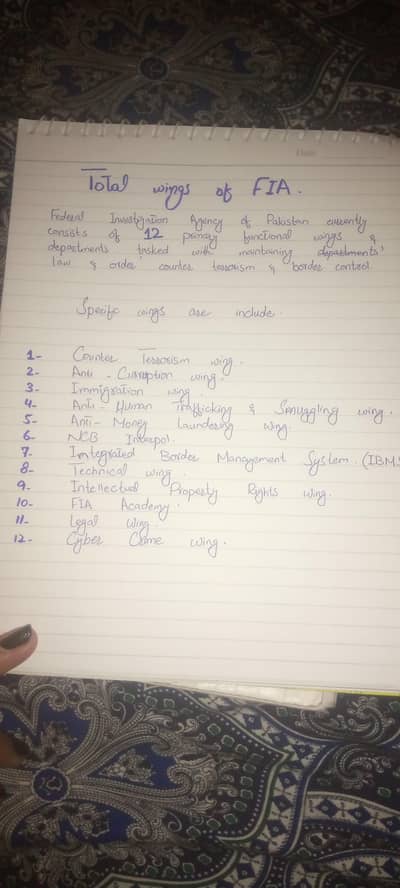 Total wings of FIA.
Federal Investigation Agency of Pakistan currently
consists of 12 primary functional wings &
departments tasked with maintaining departments'
law & order' counter terrorism & border control.
Specific wings are include.
1- Counter Terrorism wing.
2- Anti - Curruption wing.
3- Immigration wing.
4- Anti- Human Trafficking & Smuggling wing.
5- Anti- Money Laundering wing.
6- NCB Interpol.
7. Integrated Border Management System. (IBMS
8- Technical wing.
9- Intellectual Property Rights wing.
10- FIA Academy.
11- Legal wing.
12- Cyber Crime wing.